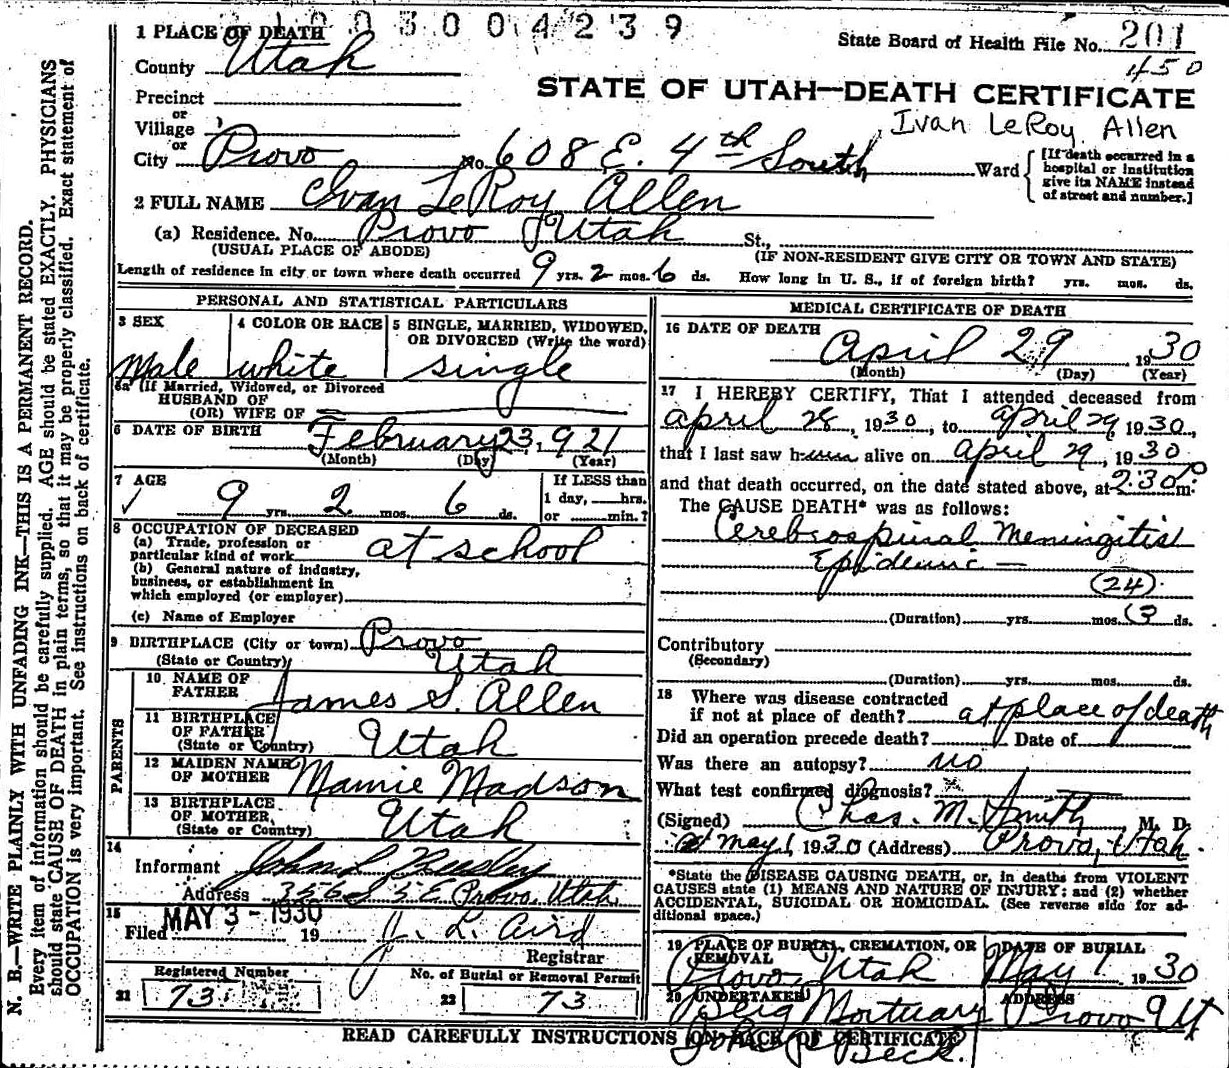 1003004239
1 PLACE OF DEATH
State Board of Health File No. 201
450
County Utah
STATE OF UTAH—DEATH CERTIFICATE
Precinct
or
Village
Ivan LeRoy Allen
or
City Provo No. 608 E. 4th South Ward
[If death occurred in a hospital or institution give its NAME instead of street and number.]
2 FULL NAME Ivan LeRoy Allen
(a) Residence. No. Provo Utah St.,
(USUAL PLACE OF ABODE) (IF NON-RESIDENT GIVE CITY OR TOWN AND STATE)
Length of residence in city or town where death occurred 9 yrs. 2 mos. 6 ds. How long in U. S., if of foreign birth? yrs. mos. ds.
PERSONAL AND STATISTICAL PARTICULARS
3 SEX
Male
4 COLOR OR RACE
white
5 SINGLE, MARRIED, WIDOWED, OR DIVORCED (Write the word)
single
5a (If Married, Widowed, or Divorced
HUSBAND OF
(OR) WIFE OF
6 DATE OF BIRTH
February 23, 1921
(Month) (Day) (Year)
7 AGE
9 yrs. 2 mos. 6 ds.
If LESS than
1 day, hrs.
or min.?
8 OCCUPATION OF DECEASED
(a) Trade, profession or
particular kind of work at school
(b) General nature of industry,
business, or establishment in
which employed (or employer)
(c) Name of Employer
9 BIRTHPLACE (City or town) Provo
(State or Country) Utah
PARENTS
10 NAME OF
FATHER James S. Allen
11 BIRTHPLACE
OF FATHER
(State or Country) Utah
12 MAIDEN NAME
OF MOTHER Mamie Madson
13 BIRTHPLACE
OF MOTHER,
(State or Country) Utah
14
Informant John L
Address 356 S 5 E Provo, Utah
15 MAY 3 - 1930
Filed 19 J. L. Aird
Registrar
Registered Number
21 73
No. of Burial or Removal Permit
22 73
MEDICAL CERTIFICATE OF DEATH
16 DATE OF DEATH
April 29 1930
(Month) (Day) (Year)
17 I HEREBY CERTIFY, That I attended deceased from
April 28, 1930, to April 29 1930,
that I last saw him alive on April 29, 1930
and that death occurred, on the date stated above, at 2:30 P m.
The CAUSE DEATH* was as follows:
Cerebrospinal Meningitis
Epidemic —
(24)
(Duration) yrs. mos. 3 ds.
Contributory
(Secondary)
(Duration) yrs. mos. ds.
18 Where was disease contracted
if not at place of death? at place of death
Did an operation precede death? Date of
Was there an autopsy? no
What test confirmed diagnosis?
(Signed) Chas. M. Smith M. D.
May 1, 1930 (Address) Provo, Utah
*State the DISEASE CAUSING DEATH, or, in deaths from VIOLENT
CAUSES state (1) MEANS AND NATURE OF INJURY; and (2) whether
ACCIDENTAL, SUICIDAL OR HOMICIDAL. (See reverse side for ad-
ditional space.)
19 PLACE OF BURIAL, CREMATION, OR
REMOVAL
Provo, Utah
DATE OF BURIAL
May 1 1930
20 UNDERTAKER
Berg Mortuary
ADDRESS
Provo Ut
READ CAREFULLY INSTRUCTIONS ON BACK OF CERTIFICATE
Beck.
N. B.—WRITE PLAINLY WITH UNFADING INK—THIS IS A PERMANENT RECORD.
Every item of information should be carefully supplied. AGE should be stated EXACTLY. PHYSICIANS
should state CAUSE OF DEATH in plain terms, so that it may be properly classified. Exact statement of
OCCUPATION is very important. See instructions on back of certificate.